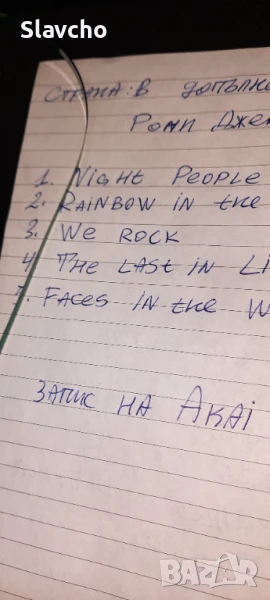 Slavcho
СТРАНА: В ДОПЪЛНЕ
РОНИ ДЖЕ
1. NIGHT PEOPLE
2. RAINBOW IN THE
3. WE ROCK
4 THE LAST IN LI
5. FACES IN THE W
ЗАПИС НА AKAI
BAZAR